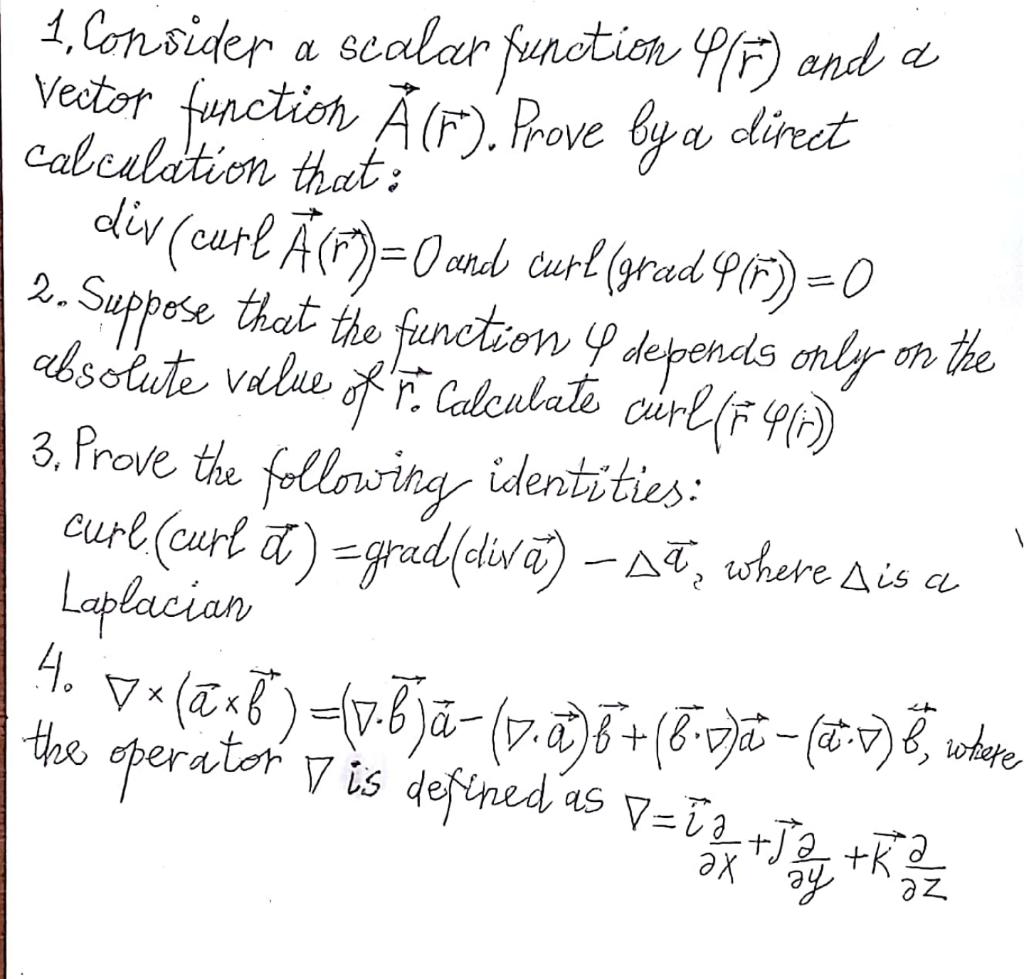 1. Consider a scalar function φ(r⃗) and a
vector function A⃗(r⃗). Prove by a direct
calculation that:
div (curl A⃗(r⃗)) = 0 and curl (grad φ(r⃗)) = 0
2. Suppose that the function φ depends only on the
absolute value of r⃗. Calculate curl (r⃗ φ(r))
3. Prove the following identities:
curl (curl a⃗) = grad (div a⃗) − Δa⃗, where Δ is a
Laplacian
4. ∇×(a⃗×b⃗) = (∇·b⃗)a⃗ − (∇·a⃗)b⃗ + (b⃗·∇)a⃗ − (a⃗·∇)b⃗, where
the operator ∇ is defined as ∇ = i⃗ ∂/∂x + j⃗ ∂/∂y + k⃗ ∂/∂z